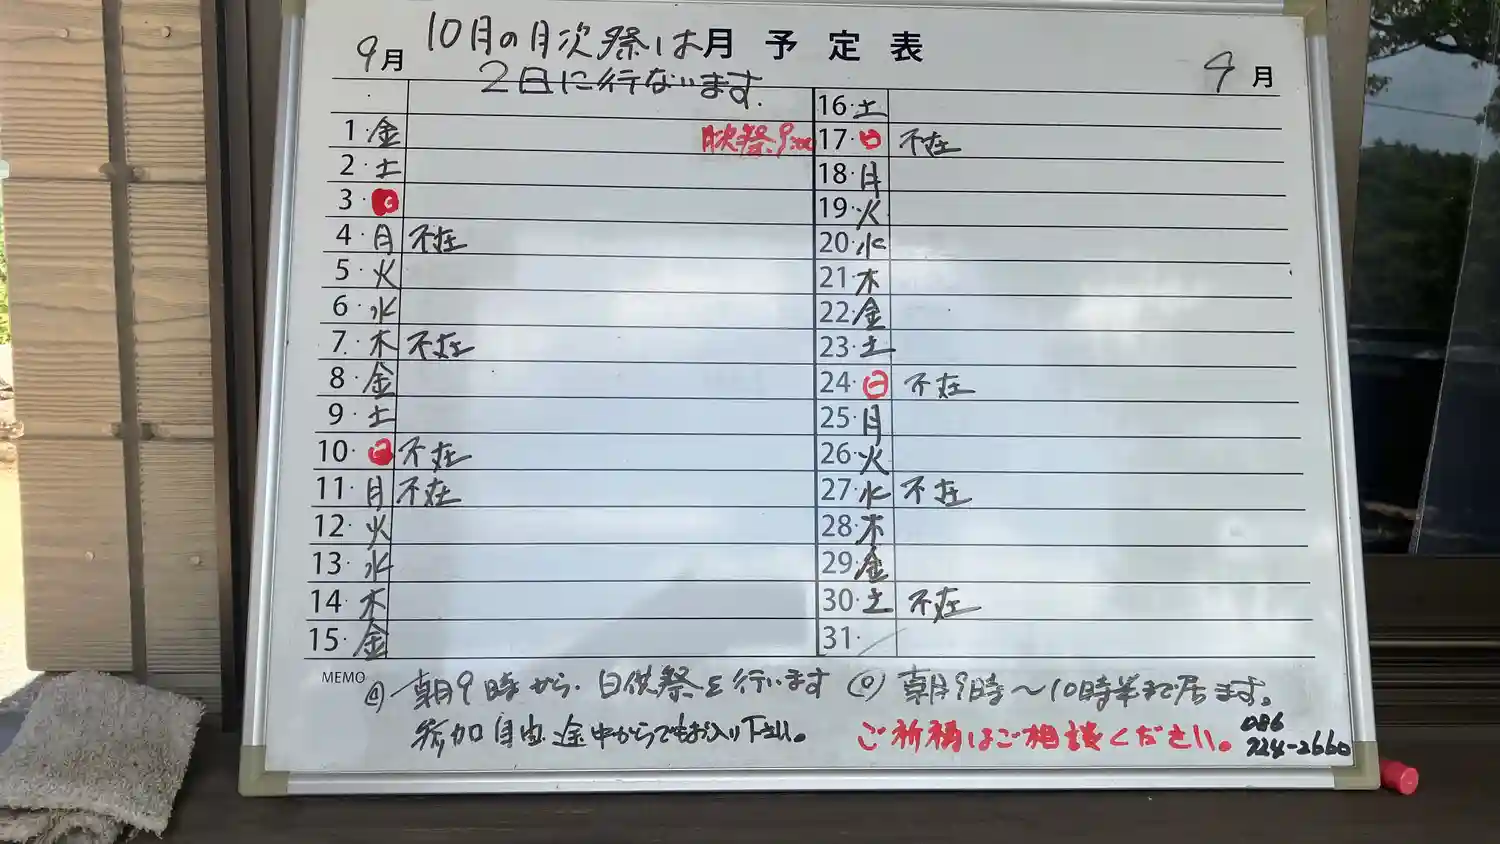 10月の月次祭は
2日に行ないます.
月予定表
9月
9月
1・金 月次祭.9:00
2・土
3・日
4・月 不在
5・火
6・水
7・木 不在
8・金
9・土
10・日 不在
11・月 不在
12・火
13・水
14・木
15・金
16・土
17・日 不在
18・月
19・火
20・水
21・木
22・金
23・土
24・日 不在
25・月
26・火
27・水 不在
28・木
29・金
30・土 不在
31・
MEMO
朝9時から.日供祭を行います
参加自由途中からでもお入り下さい。
朝9時〜10時半まで居ます。
ご祈祷はご相談ください。
086
224-2660